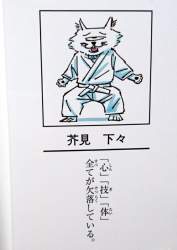 芥見 下々
「心」「技」「体」
全てが欠落している。